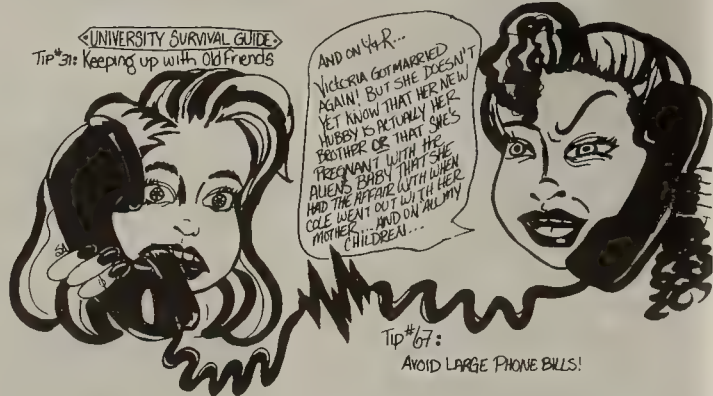 UNIVERSITY SURVIVAL GUIDE
Tip #31: Keeping up with Old Friends
AND ON Y&R...
VICTORIA GOT MARRIED
AGAIN! BUT SHE DOESN'T
YET KNOW THAT HER NEW
HUBBY IS ACTUALLY HER
BROTHER OR THAT SHE'S
PREGNANT WITH THE
ALIENS BABY THAT SHE
HAD THE AFFAIR WITH WHEN
COLE WENT OUT WITH HER
MOTHER... AND ON ALL MY
CHILDREN...
Tip #67:
AVOID LARGE PHONE BILLS!